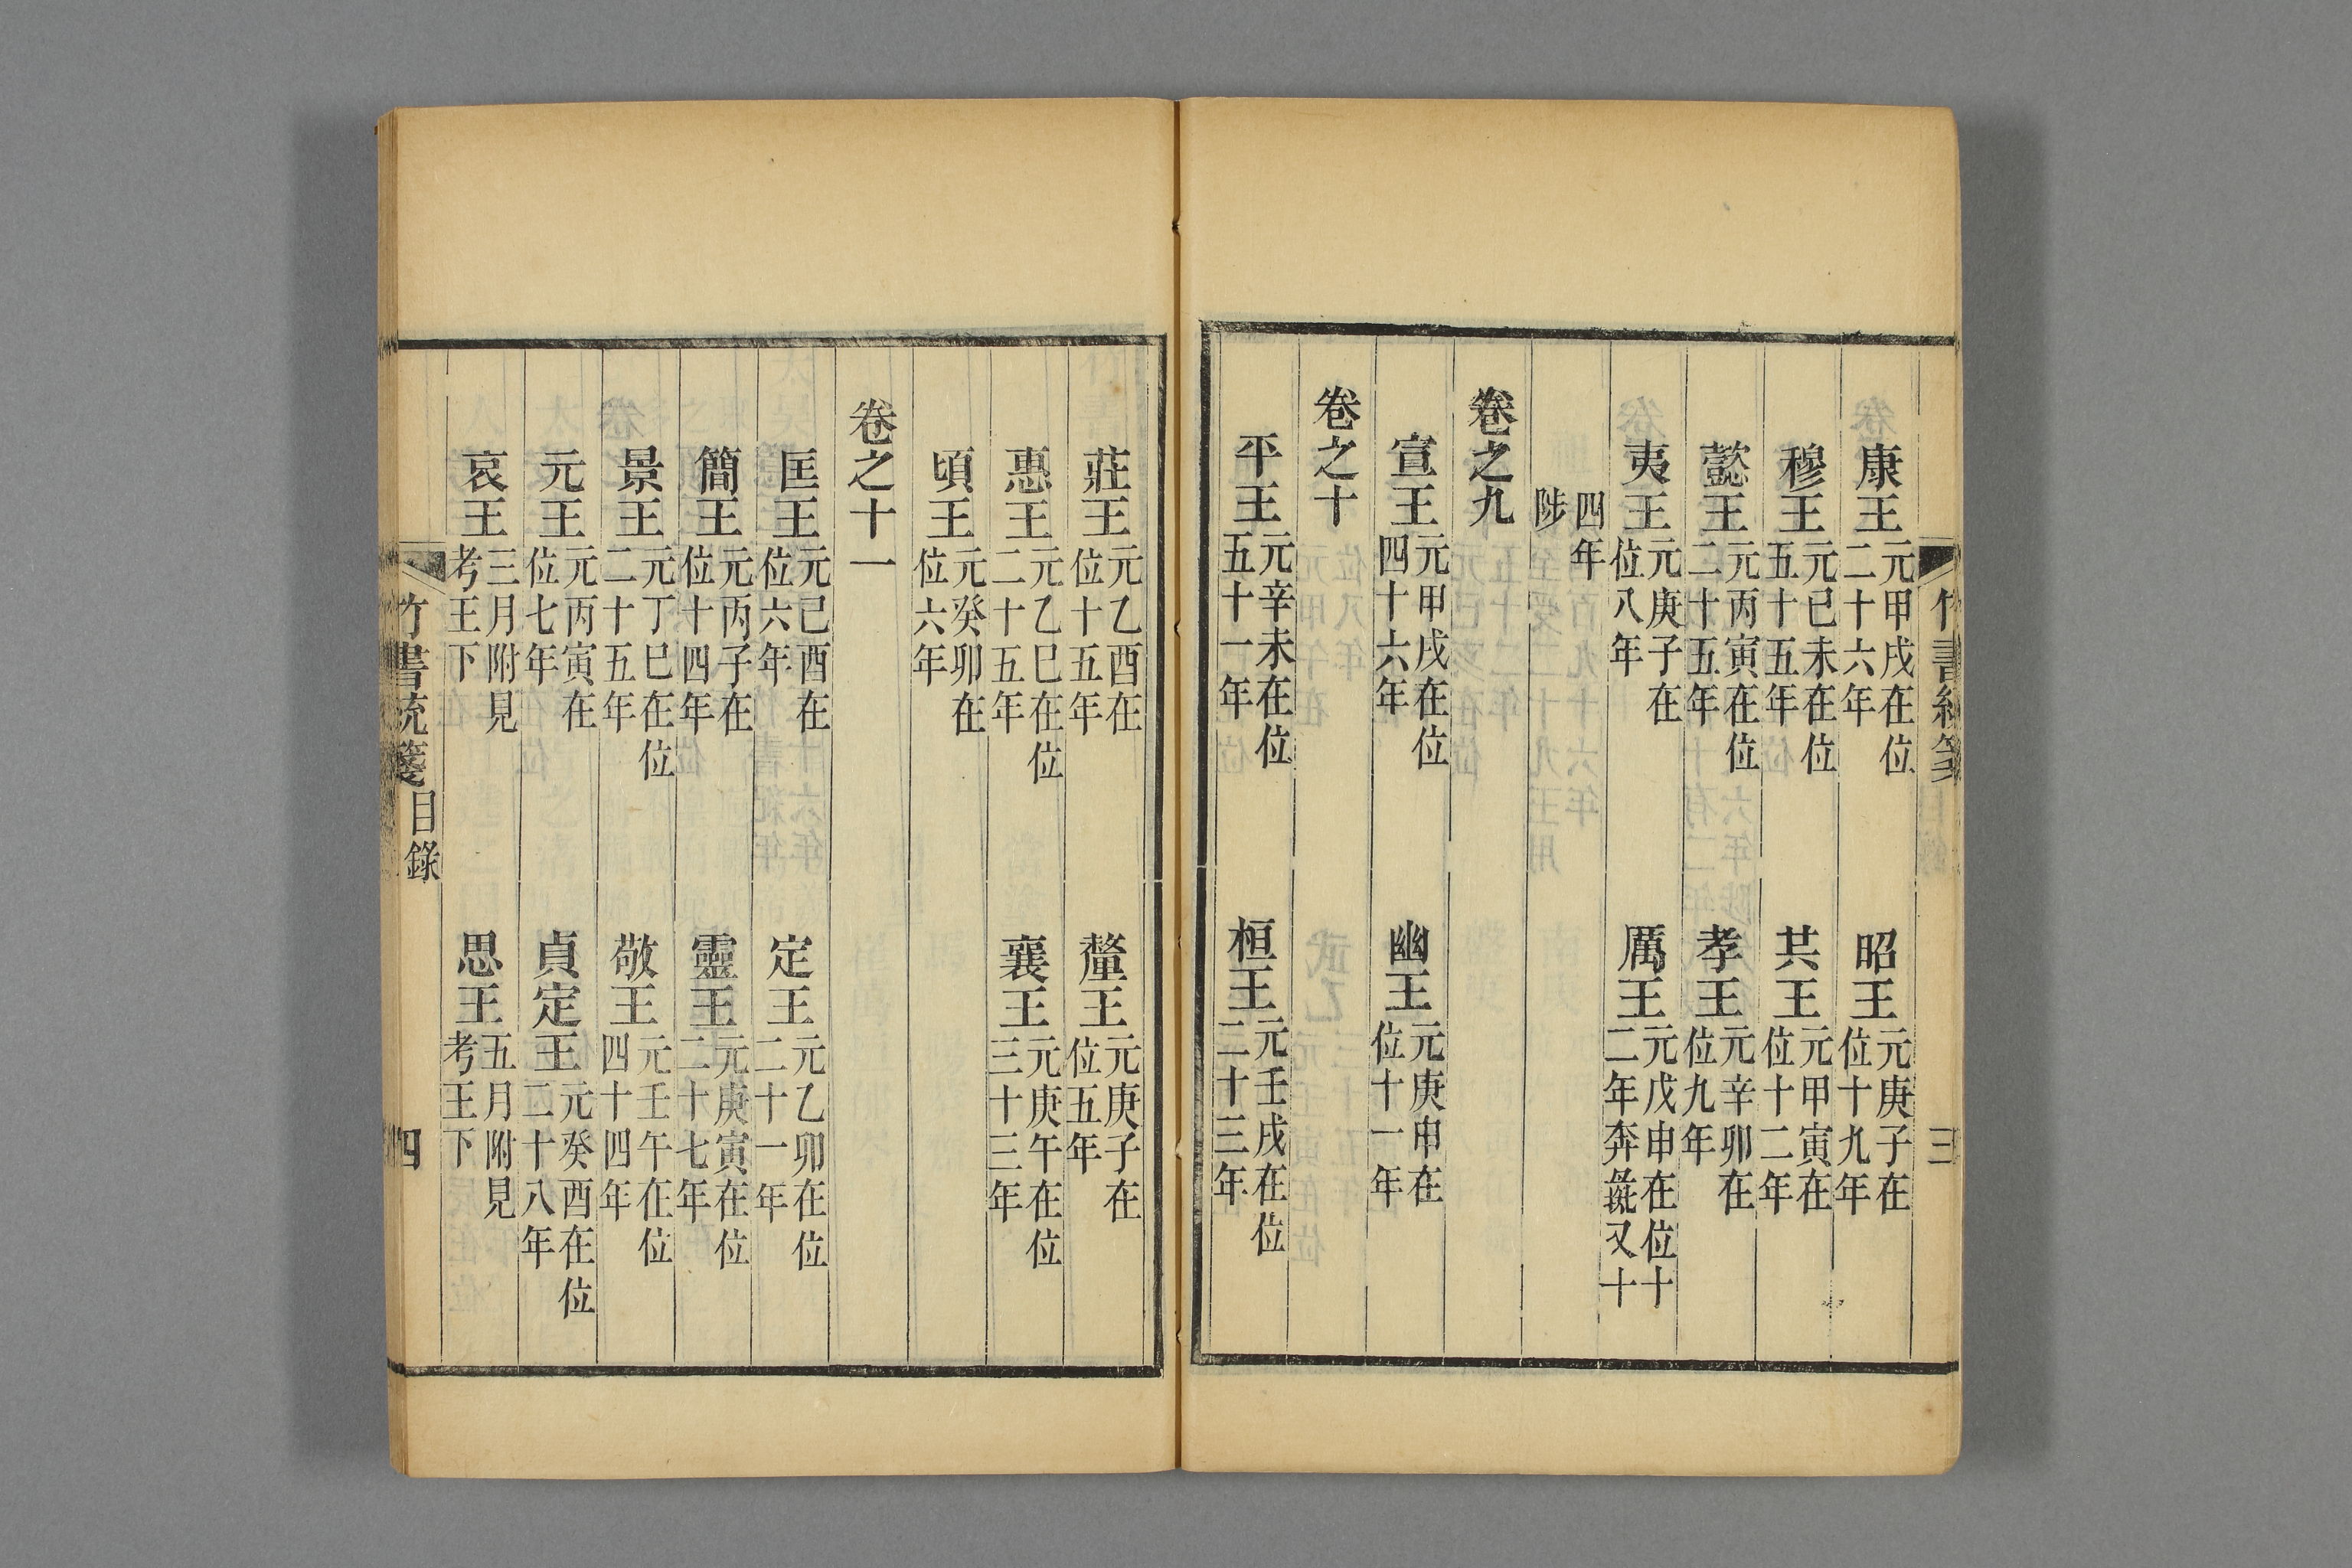 竹書統箋 目錄 三
康王 元甲戌在位二十六年 昭王 元庚子在位十九年
穆王 元已未在位五十五年 共王 元甲寅在位十二年
懿王 元丙寅在位二十五年 孝王 元辛卯在位九年
夷王 元庚子在位八年 厲王 元戊申在位十二年奔彘又十
四年陟
卷之九
宣王 元甲戌在位四十六年 幽王 元庚申在位十一年
卷之十
平王 元辛未在位五十一年 桓王 元壬戌在位二十三年
莊王 元乙酉在位十五年 釐王 元庚子在位五年
惠王 元乙巳在位二十五年 襄王 元庚午在位三十三年
頃王 元癸卯在位六年
卷之十一
匡王 元己酉在位六年 定王 元乙卯在位二十一年
簡王 元丙子在位十四年 靈王 元庚寅在位二十七年
景王 元丁巳在位二十五年 敬王 元壬午在位四十四年
元王 元丙寅在位七年 貞定王 元癸酉在位二十八年
哀王 三月附見考王下 思王 五月附見考王下
竹書統箋 目錄 四